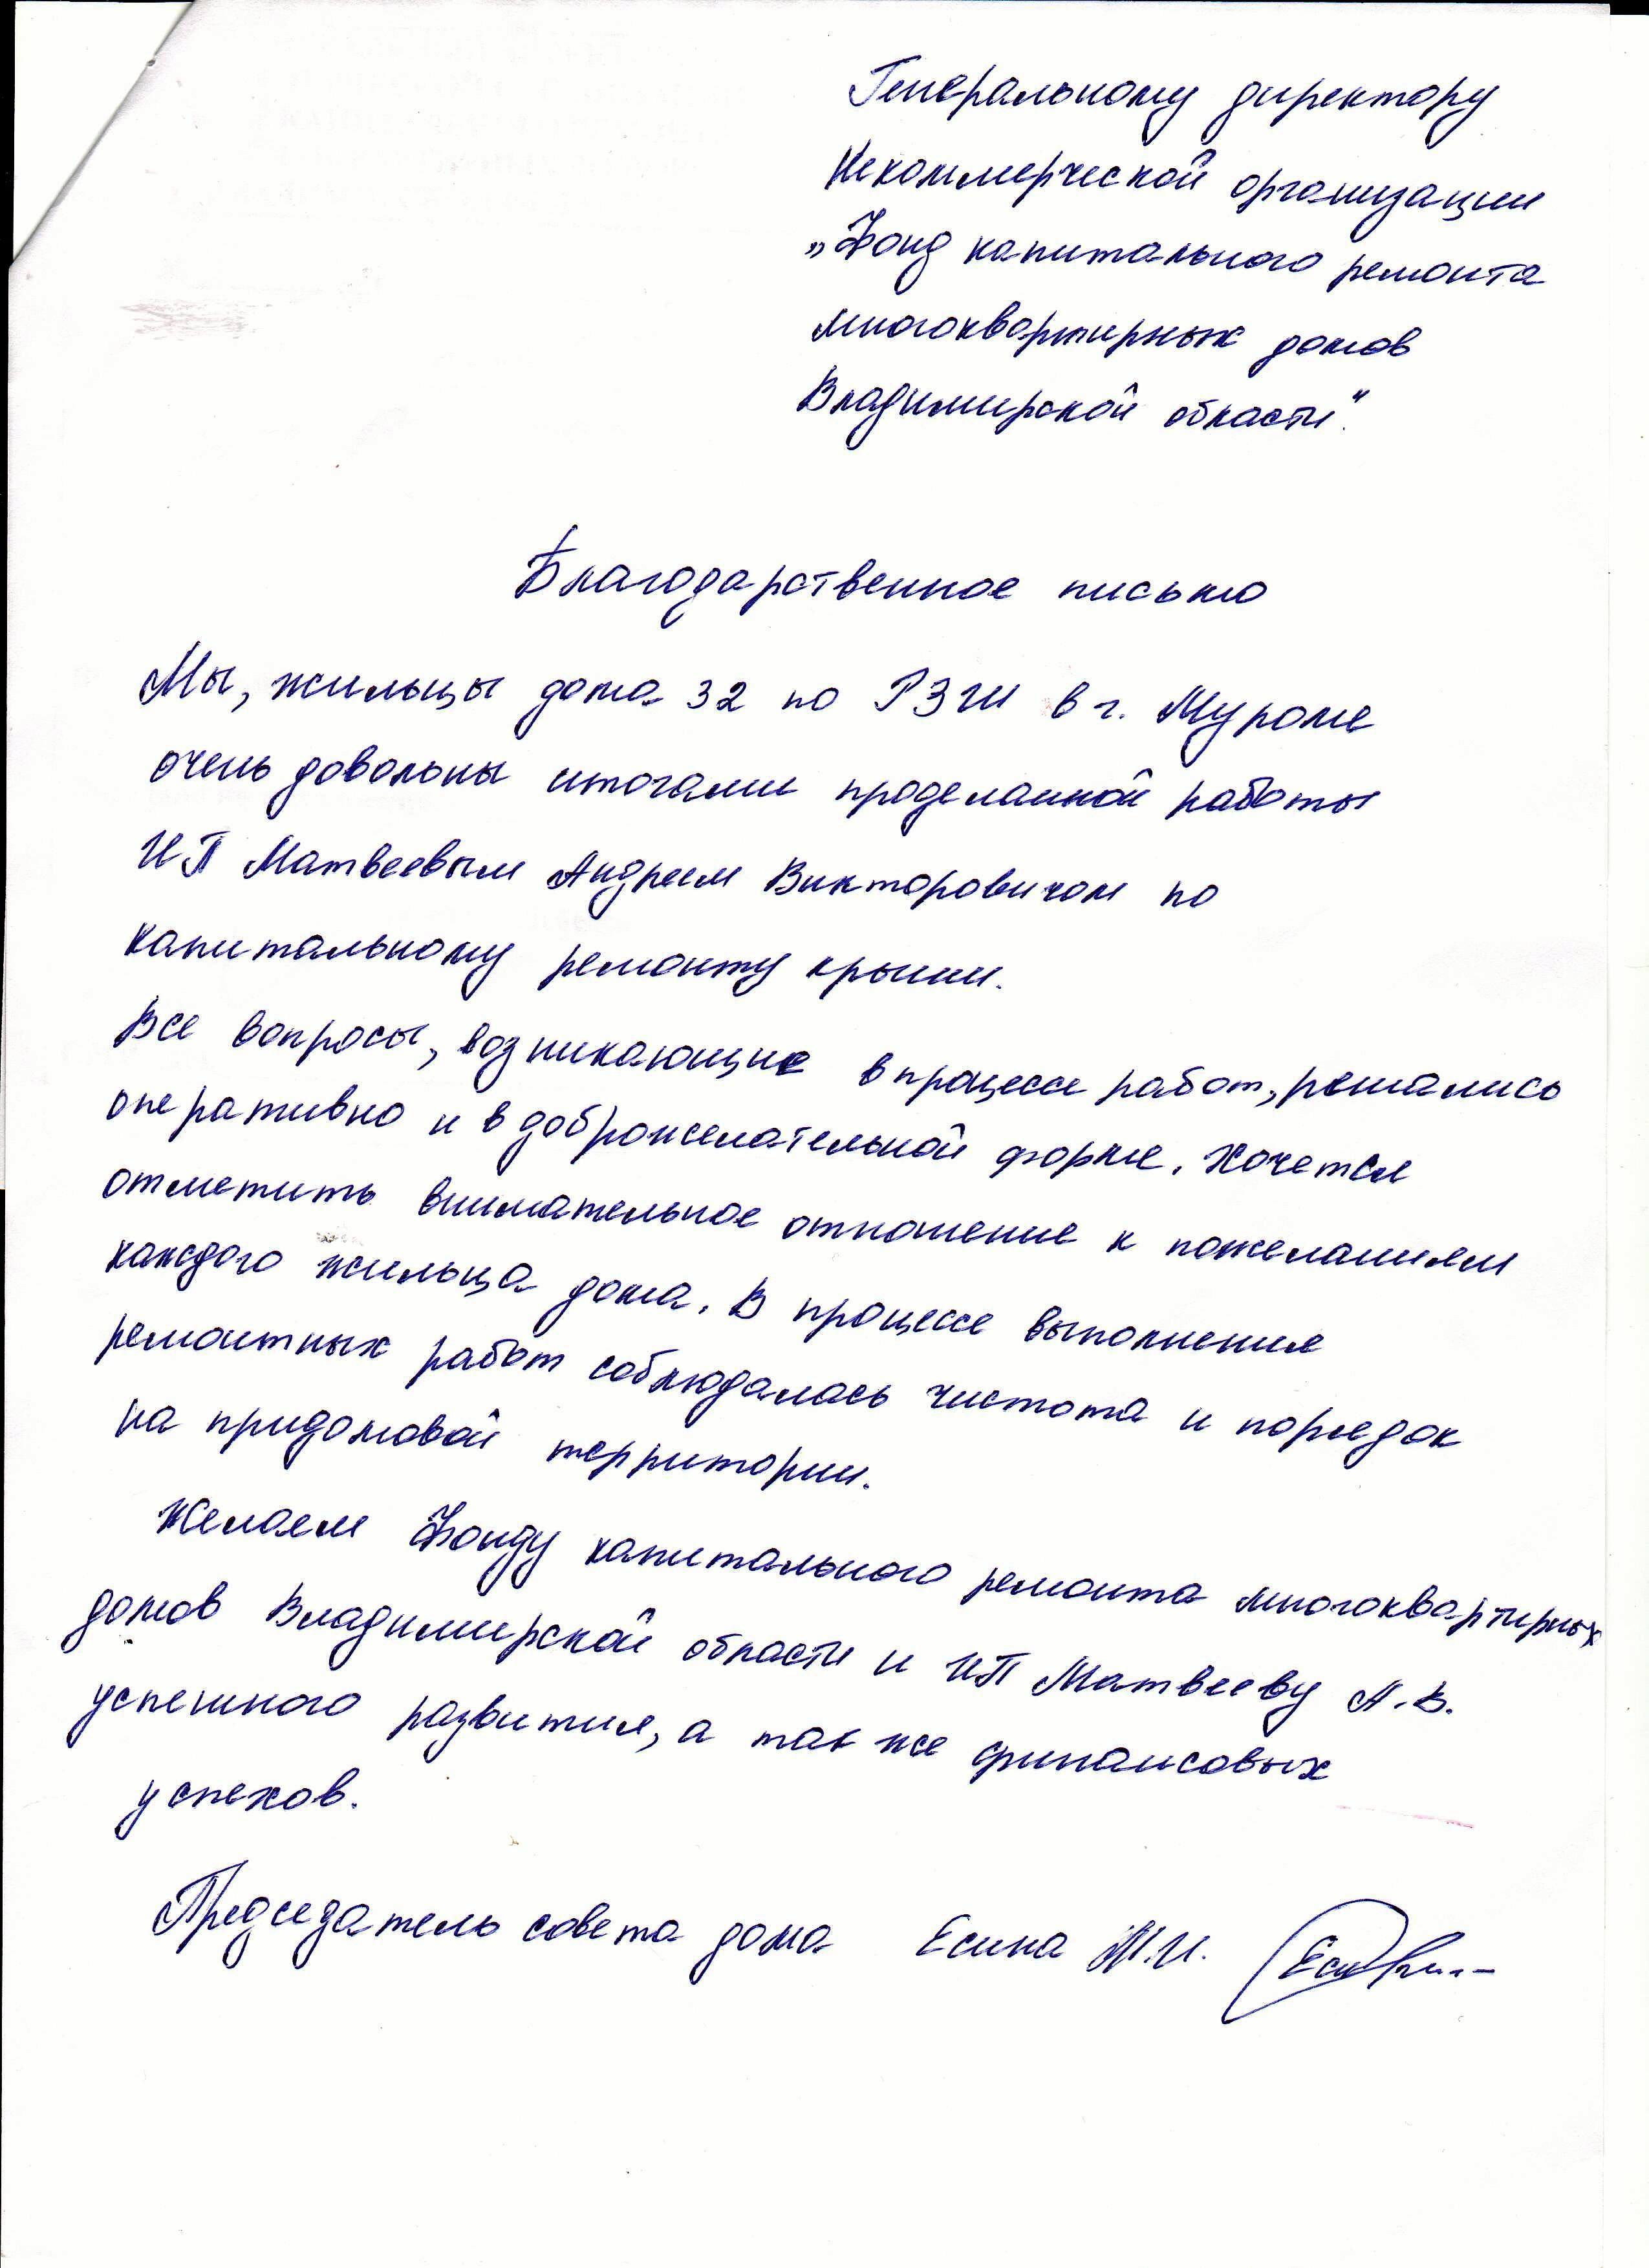 Генеральному директору
Некоммерческой организации
„Фонд капитального ремонта
многоквартирных домов
Владимирской области".
Благодарственное письмо
Мы, жильцы дома 32 по РЗШ в г. Муроме
очень довольны итогами проделанной работы
ИП Матвеевым Андреем Викторовичом по
капитальному ремонту крыши.
Все вопросы, возникающие в процессе работ, решались
оперативно и в доброжелательной форме. Хочется
отметить внимательное отношение к пожеланиям
каждого жильца дома. В процессе выполнения
ремонтных работ соблюдалась чистота и порядок
на придомовой территории.
Желаем Фонду капитального ремонта многоквартирных
домов Владимирской области и ИП Матвееву А.В.
успешного развития, а так же финансовых
успехов.
Председатель совета дома Есина М.И.